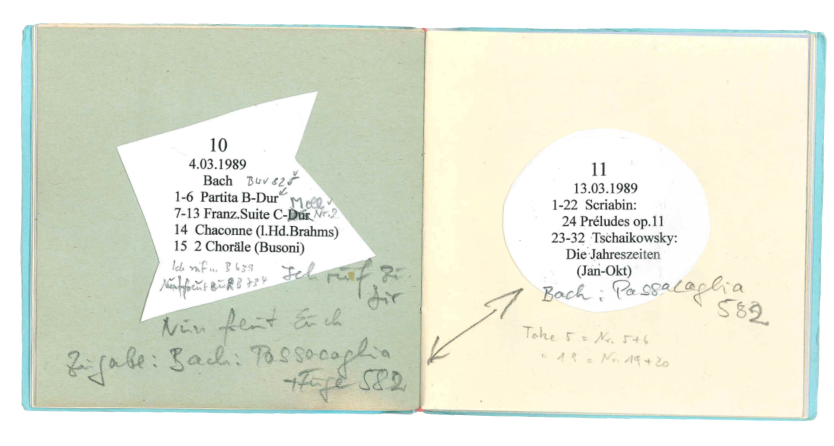 10
4.03.1989
Bach BWV 825
1-6 Partita B-Dur
Moll
7-13 Franz.Suite C-Dur Nr.2
14 Chaconne (l.Hd.Brahms)
15 2 Choräle (Busoni)
Ich ruf B 639
Nun freut Euch B 734
Ich ruf zu
dir
Nun freut Euch
Zugabe: Bach: Passacaglia
+Fuge 582
11
13.03.1989
1-22 Scriabin:
24 Préludes op.11
23-32 Tschaikowsky:
Die Jahreszeiten
(Jan-Okt)
Bach: Passacaglia
582
Take 5 = Nr. 5+6
" 19 = Nr. 19+20